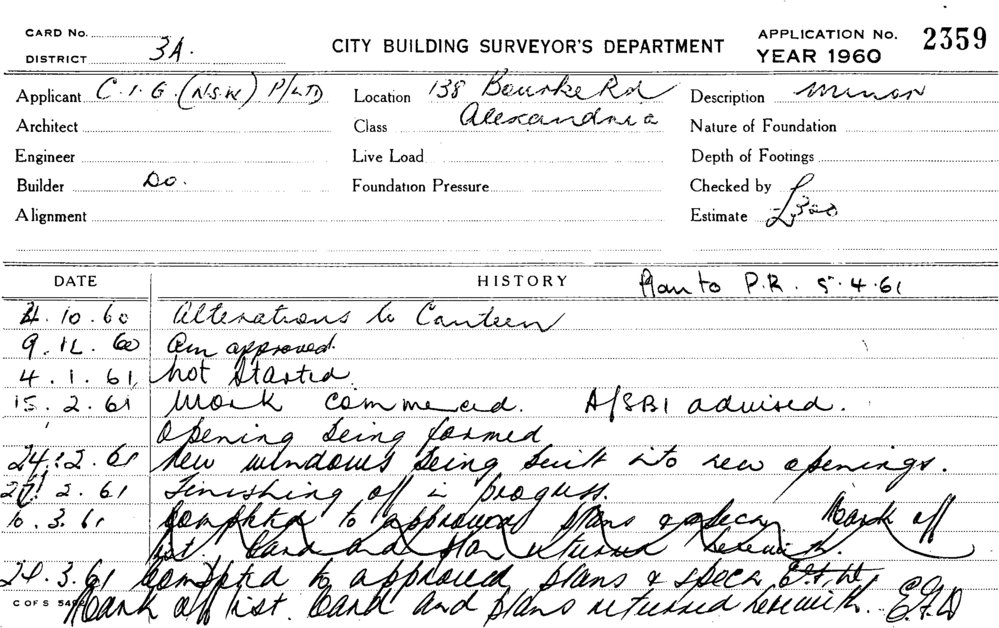 CARD No.
DISTRICT 3A.
CITY BUILDING SURVEYOR'S DEPARTMENT
APPLICATION No. 2359
YEAR 1960
Applicant C.I.G. (N.S.W) P/LTD Location 138 Bourke Rd Description Minor
Architect Class Alexandria Nature of Foundation
Engineer Live Load Depth of Footings
Builder Do. Foundation Pressure Checked by
Alignment Estimate £300
DATE HISTORY Plan to P.R. 5.4.61
4.10.60 Alterations to Canteen
9.12.60 Am approved.
4.1.61 Not Started
15.2.61 Work commenced. A/SBI advised.
Opening being formed
24.2.61 New windows being built into new openings.
27.2.61 Finishing off in progress.
10.3.61 Completed to approved plans & specn. Mark off
list. Card and plan returned herewith.
24.3.61 Completed to approved plans & specn
C OF S Mark off list. Card and plans returned herewith. E.F.W